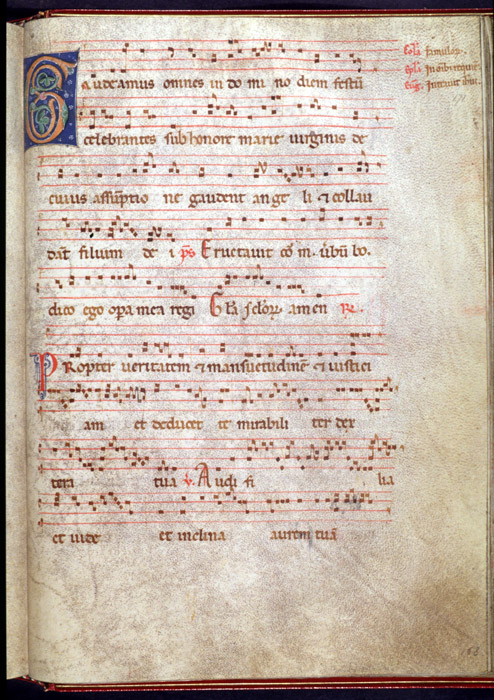 Gaudeamus omnes in do mi no diem festū
celebrantes sub honore marie uirginis de
cuius assūptio ne gaudent ange li ⁊ collau
dāt filium de i p̄s Eructauit co᷒ m. ūbū bo.
dico ego opa mea regi Gl̄a sclor amen
Propter ueritatem ⁊ mansuetudinē ⁊ iustici
am et deducet te mirabili ter dex
tera tua v. Audi fi lia
et uide et inclina aurem tuā